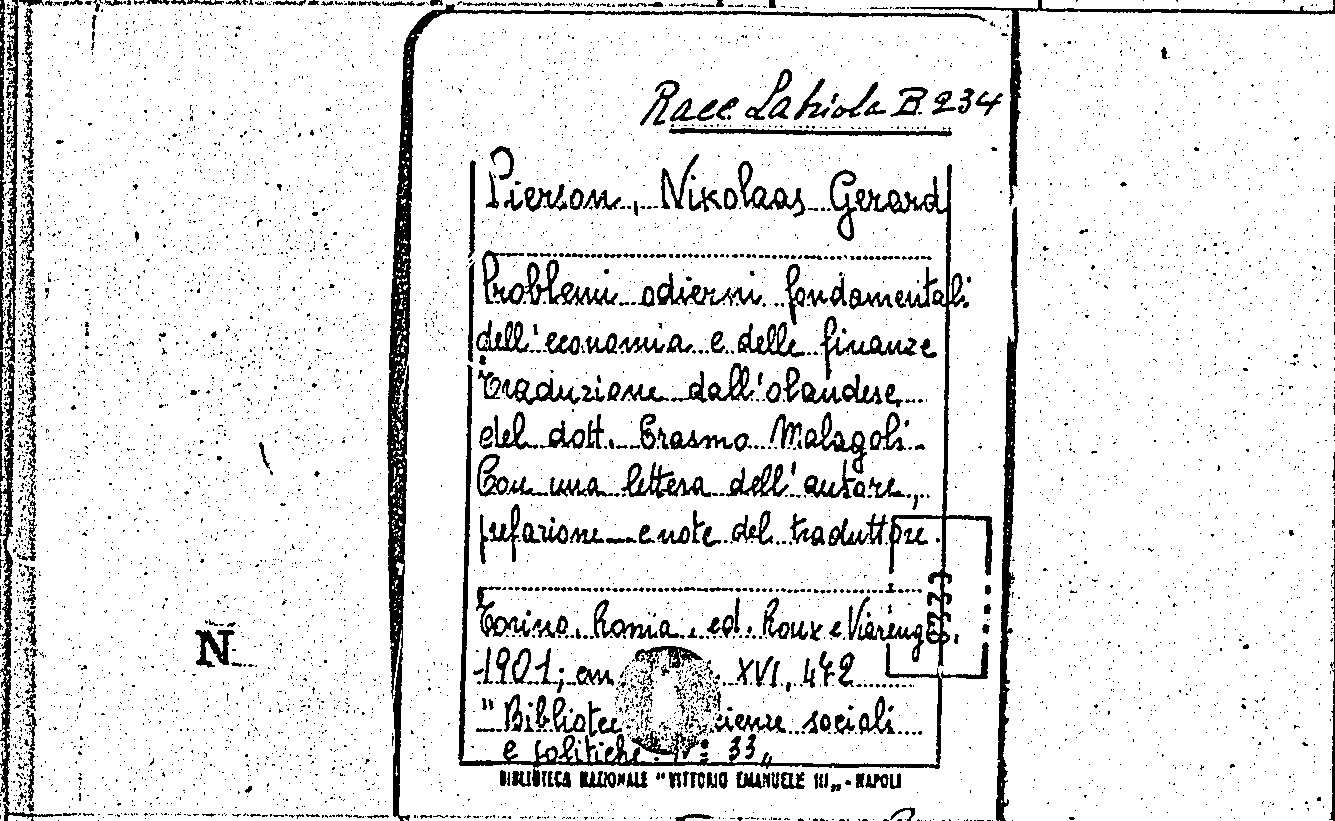 Racc. Labriola B. 234
Pierson, Nikolaas Gerard
Problemi odierni fondamentali
dell'economia e delle finanze
Traduzione dall'olandese
del dott. Erasmo Malagoli.
Con una lettera dell'autore,
prefazione e note del traduttore.
Torino, Roma, ed. Roux e Viarengo.
1901; XVI, 472
"Bibliotec scienze sociali
e politiche. N° 33"
BIBLIOTECA NAZIONALE "VITTORIO EMANUELE III" - NAPOLI
N